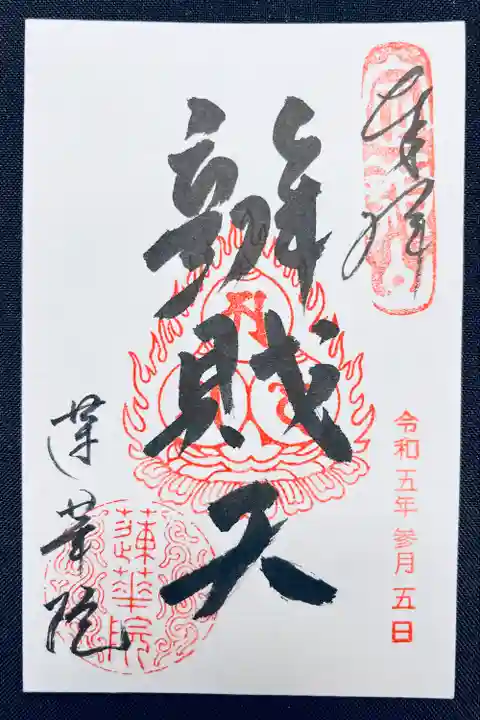 奉拝
辨財天
令和五年参月五日
蓮華院
蓮華院